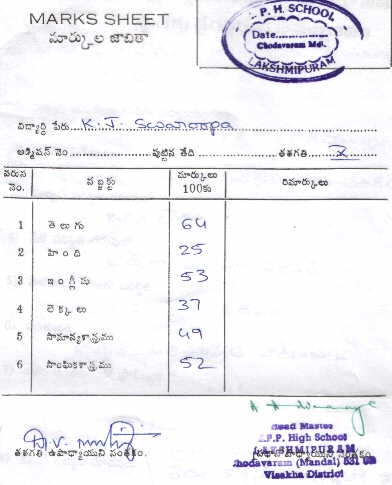 MARKS SHEET
మార్కుల జాబితా
P. H. SCHOOL
Date
Chodavaram Mdl.
LAKSHMIPURAM
విద్యార్థి పేరు K. J. Swaroopa
అడ్మిషన్ నెం. పుట్టిన తేది తరగతి X
వరుస నెం. సబ్జక్టు మార్కులు 100కు రిమార్కులు
1 తెలుగు 64
2 హింది 25
3 ఇంగ్లీషు 53
4 లెక్కలు 37
5 సామాన్యశాస్త్రము 49
6 సాంఘికశాస్త్రము 52
Head Master
Z.P.P. High School
LAKSHMIPURAM
Chodavaram (Mandal) 531
Visakha District
తరగతి ఉపాధ్యాయుని సంతకం. ప్రధానోపాధ్యాయుని సంతకం